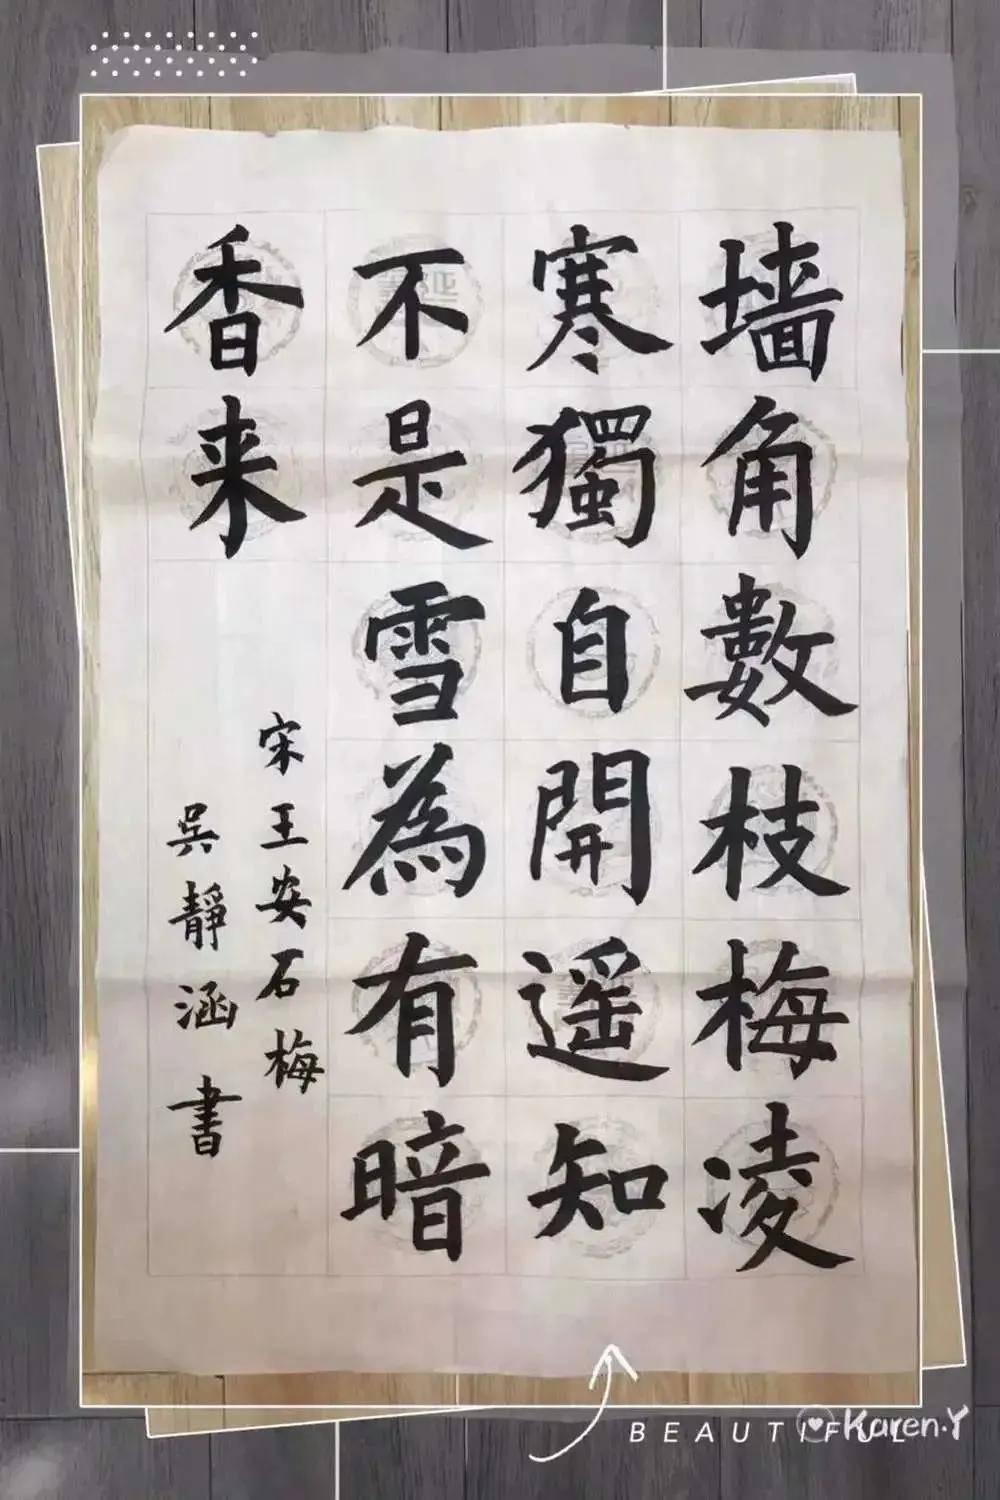 墙角數枝梅凌
寒獨自開遥知
不是雪為有暗
香来
宋王安石梅
吳靜涵書
BEAUTIFUL
Karen.Y